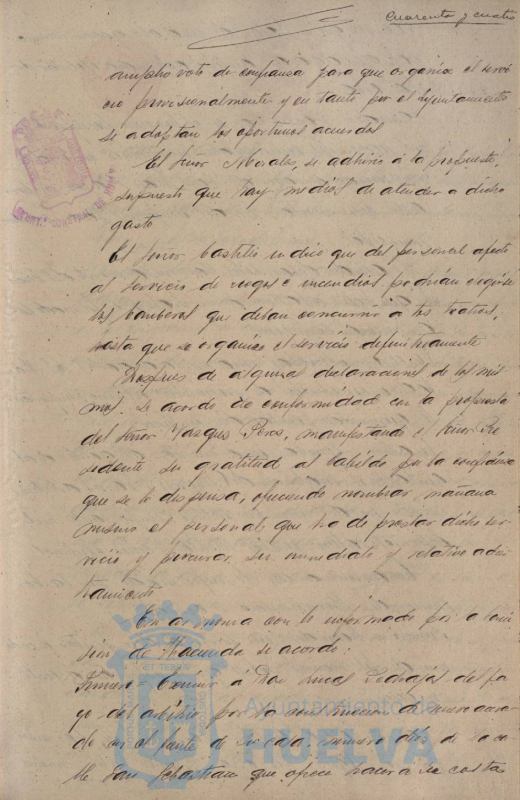 Cuarenta y cuatro
amplio voto de confianza para que organice el servi
cio provisionalmente y en tanto por el Ayuntamiento
se adoptan los oportunos acuerdos
El Señor Morales, se adhirio á la propuesta,
supuesto que hay medios de atender a dicho
gasto
El Señor Castilla indico que del personal afecto
al servicio de riegos e incendios podrian exijirse
los bomberos que deban concurrir a los teatros,
hasta que se organice el servicio definitivamente
Despues de algunas declaraciones de los mis
mos. Se acordo de conformidad con la propuesta
del Señor Vazquez Perez, manifestando el Señor Pre
sidente su gratitud al Cabildo por la confianza
que se le dispensa, ofreciendo nombrar mañana
mismo el personal que ha de prestar dicho ser
vicio y procurar su inmediato y relativo adies
tramiento
En armonia con lo informado por la Comi
sion de Hacienda se acordo:
Primero = Eximir á Don del pa
go del arbitrio por la construccion de nuevo acera
do en el frente de su casa, numero diez de la ca
lle San Sebastian que ofrece hacer a su costa
Ayuntamiento de
HUELVA